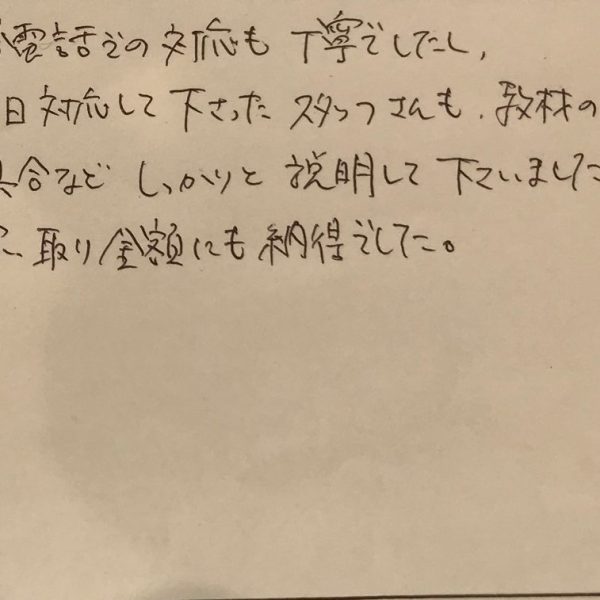 電話での対応も丁寧でしたし、
日対応して下さったスタッフさんも、教材の
具合などしっかりと説明して下さいました
取り金額にも納得でした。